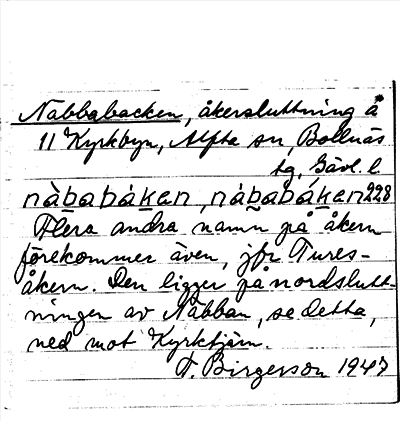 Nabbabacken, åkersluttning å
11 Kyrkbyn, Alfta sn, Bollnäs
tg, Gävl. l.
nàbabákan, nàbabákan 228
Flera andra namn på åkern
förekommer även, jfr Tures-
åkern. Den ligger på nordslutt-
ningen av Nabban, se detta,
ned mot Kyrktjärn.
T. Birgerson 1947